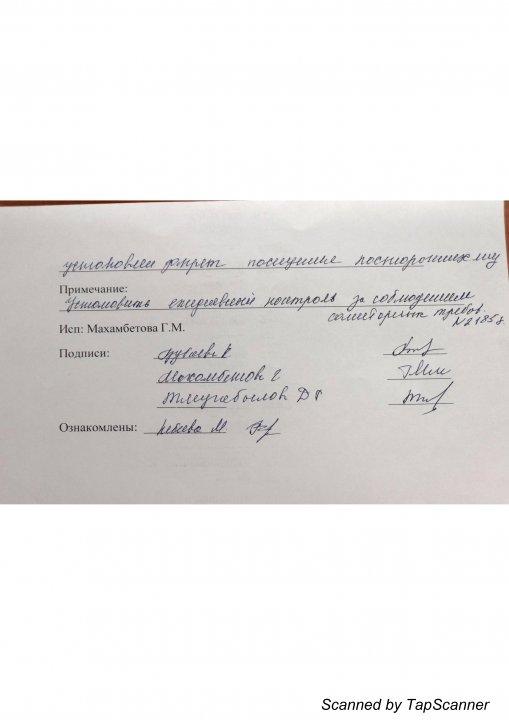 установлен запрет посещение посторонних лиц
Примечание:
Установить ежедневный контроль за соблюдением
санитарных требов.
№ 2185д.
Исп: Махамбетова Г.М.
Подписи:
Махамбетова Г
Тлеугабылов Д Г
Ознакомлены: М
Scanned by TapScanner